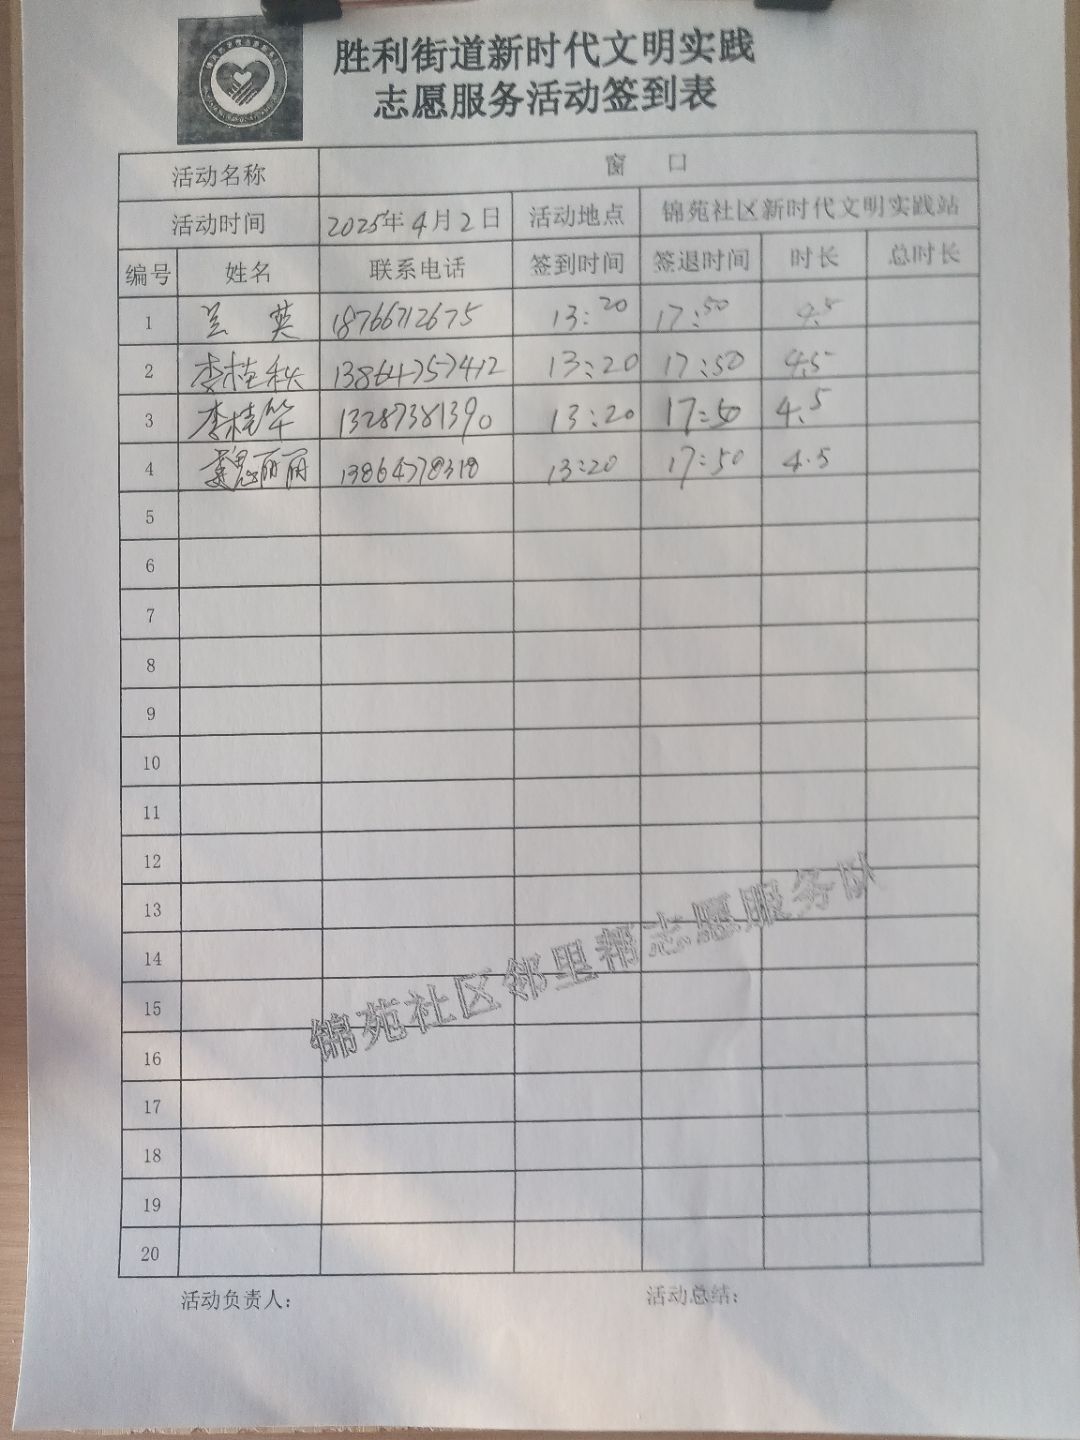 胜利街道新时代文明实践
志愿服务活动签到表
活动名称 窗 口
活动时间 2025年4月2日 活动地点 锦苑社区新时代文明实践站
编号 姓名 联系电话 签到时间 签退时间 时长 总时长
1 兰 英 18766712675 13:20 17:50 4.5
2 李桂秋 13864757412 13:20 17:50 4.5
3 李桂华 13287381390 13:20 17:50 4.5
4 魏丽丽 13864778318 13:20 17:50 4.5
5
6
7
8
9
10
11
12
13
14
15
16
17
18
19
20
锦苑社区邻里帮志愿服务队
活动负责人:
活动总结: